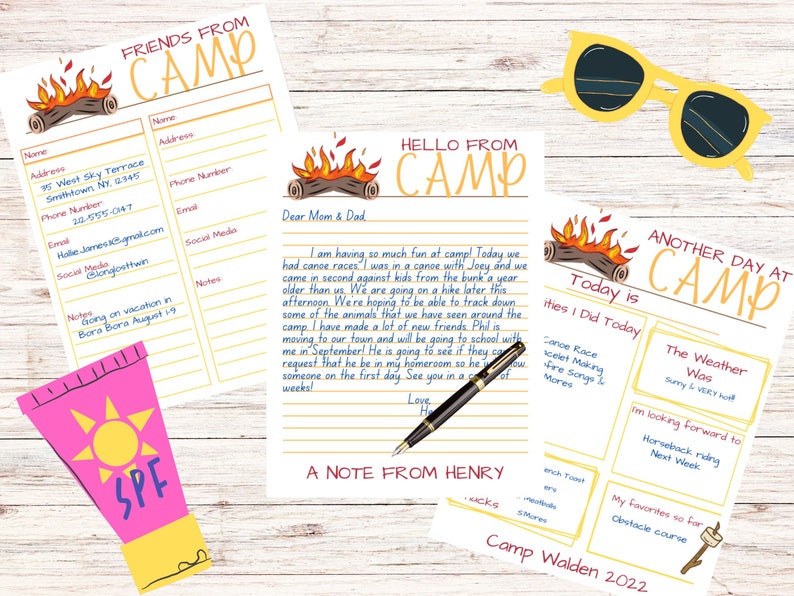 FRIENDS FROM
CAMP
Name:
Address:
35 West Sky Terrace
Smithtown, NY, 12345
Phone Number:
212-555-0147
Email:
HallieJames11@gmail.com
Social Media:
@longlosttwin
Notes
Going on vacation in
Bora Bora August 1-9
Name:
Address:
Phone Number:
Email:
Social Media
Notes
SPF
HELLO FROM
CAMP
Dear Mom & Dad,
I am having so much fun at camp! Today we
had canoe races. I was in a canoe with Joey and we
came in second against kids from the bunk a year
older than us. We are going on a hike later this
afternoon. We're hoping to be able to track down
some of the animals that we have seen around the
camp. I have made a lot of new friends. Phil is
moving to our town and will be going to school with
me in September! He is going to see if they can
request that he be in my homeroom so he
someone on the first day. See you in a of
weeks!
Love,
A NOTE FROM HENRY
ANOTHER DAY AT
CAMP
Today is
I Did Today
Canoe Race
Making
Songs &
S'Mores
The Weather
Was
Sunny & VERY hot!!!
I'm looking forward to
Horseback riding
Next Week
Toast
Meatballs
S'Mores
My favorites so far
Obstacle course
Camp Walden 2022